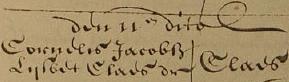 den 11en dito
Cornelis Jacobß
Lijsbet Claes dr Claes